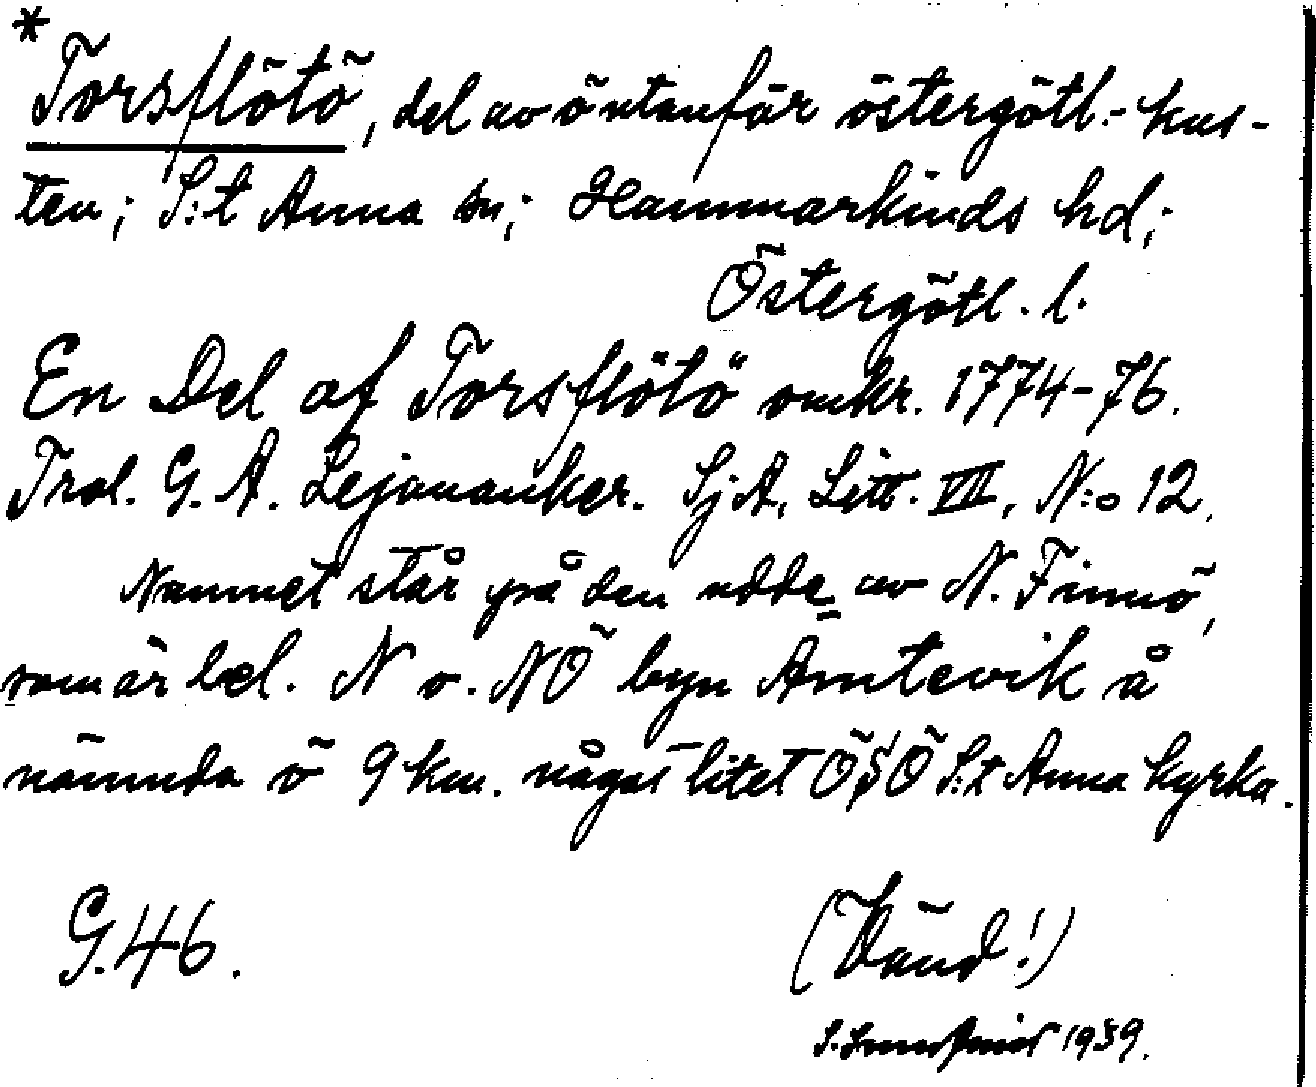 * Torsflötö, del av ö utanför östergötl.-kus-
ten; S:t Anna sn; Hammarkinds hd;
Östergötl. l.
En Del af Torsflötö omkr. 1774-76.
Trol. G. A. Lejonanker. SjA, Litt. VII, N:o 12.
Namnet står på den udde av N. Finnö,
som är bel. N o. NÖ byn Åmtevik å
nämnda ö 9 km. något litet ÖSÖ S:t Anna kyrka.
G.46.
(Vänd!)
S. 1939.